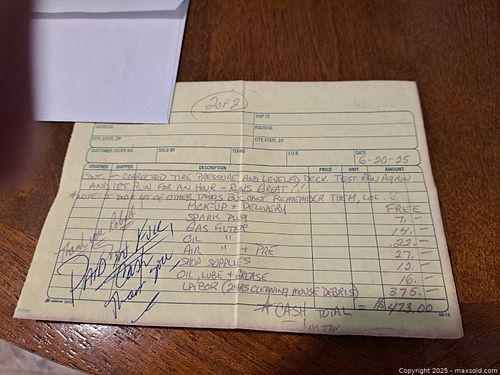 2 of 2
SHIP TO
ADDRESS
ADDRESS
CITY, STATE, ZIP
CITY, STATE, ZIP
CUSTOMER ORDER NO. SOLD BY TERMS F.O.B. DATE
6-20-25
ORDERED SHIPPED DESCRIPTION PRICE UNIT AMOUNT
CONT. - CORRECTED TIRE PRESSURE AND LEVELED DECK. TEST RAN AGAIN
AND LET RUN FOR AN HOUR - RUNS GREAT!!
I DID A LOT OF OTHER THINGS BUT CANT REMEMBER THEM, LOL.
PICK-UP & DELIVERY FREE
SPARK PLUG 7.-
GAS FILTER 14.-
OIL " 22.-
AIR " + PRE 27.-
SHOP SUPPLIES 12.-
OIL, LUBE & GREASE 16.-
LABOR (2 HRS CLEANING MOUSE DEBRIS) 375.-
* CASH TOTAL = $473.00
NO TAX
Thank you
PAID IN FULL
Cash
Thank you
Copyright 2025 - maxsold.com